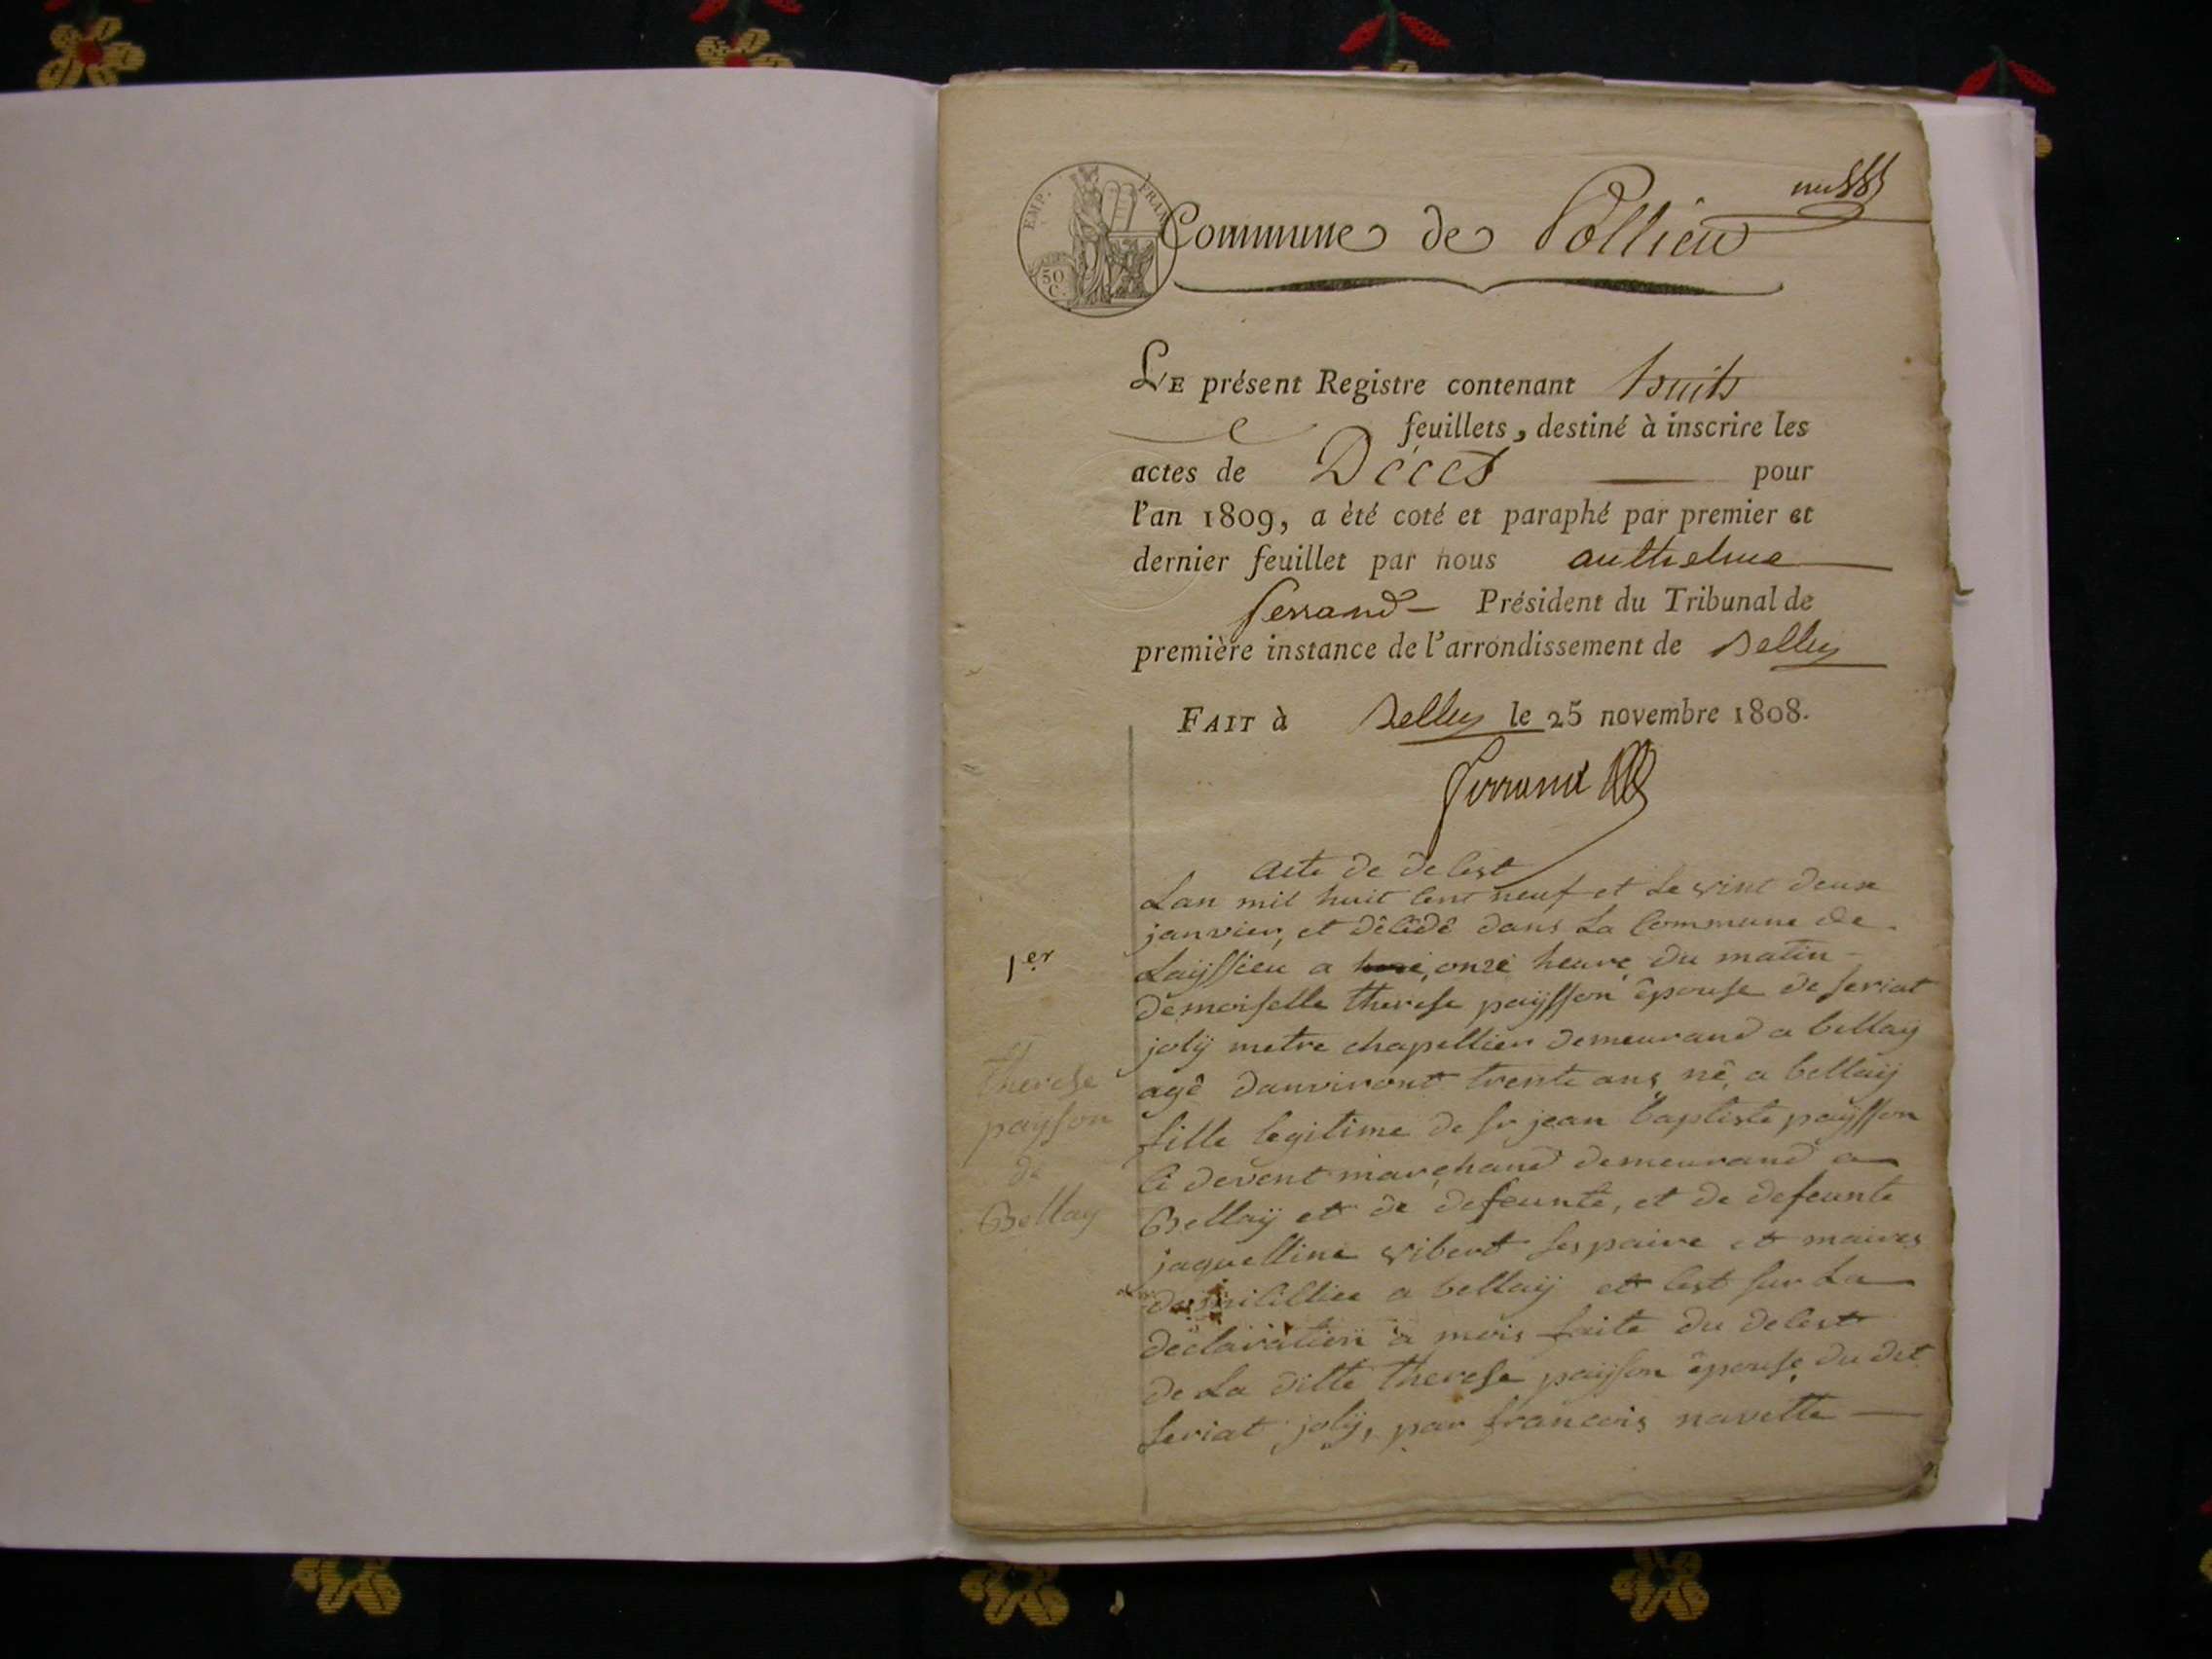 EMP. FRAN
50
C.
Commune de Pollieu
LE présent Registre contenant huits
feuillets, destiné à inscrire les
actes de Décès pour
l'an 1809, a été coté et paraphé par premier et
dernier feuillet par nous anthelme
ferrand Président du Tribunal de
première instance de l'arrondissement de Belley
FAIT à Belley le 25 novembre 1808.
ferrand
acte de decest
Lan mil huit cent neuf et le vint deux
janvier, et décédé dans la Commune de
1er
Laÿssieu a onze heure du matin
demoiselle therese paÿsson épouse de seriat
jolÿ metre chapellier demeurand a bellaÿ
agé danviront trente ans né, a bellaÿ
fille legitime de sr jean baptiste paÿsson
ci devent marchand demeurand a
Bellaÿ et de defeunte, et de defeunte
jaquelline vibert ses paire et maires
a bellaÿ et cest sur la
déclaration a mois faite du decest
de la ditte therese paÿson épouse du dit
seriat jolÿ, par francois navette
therese
payson
de
Bellay